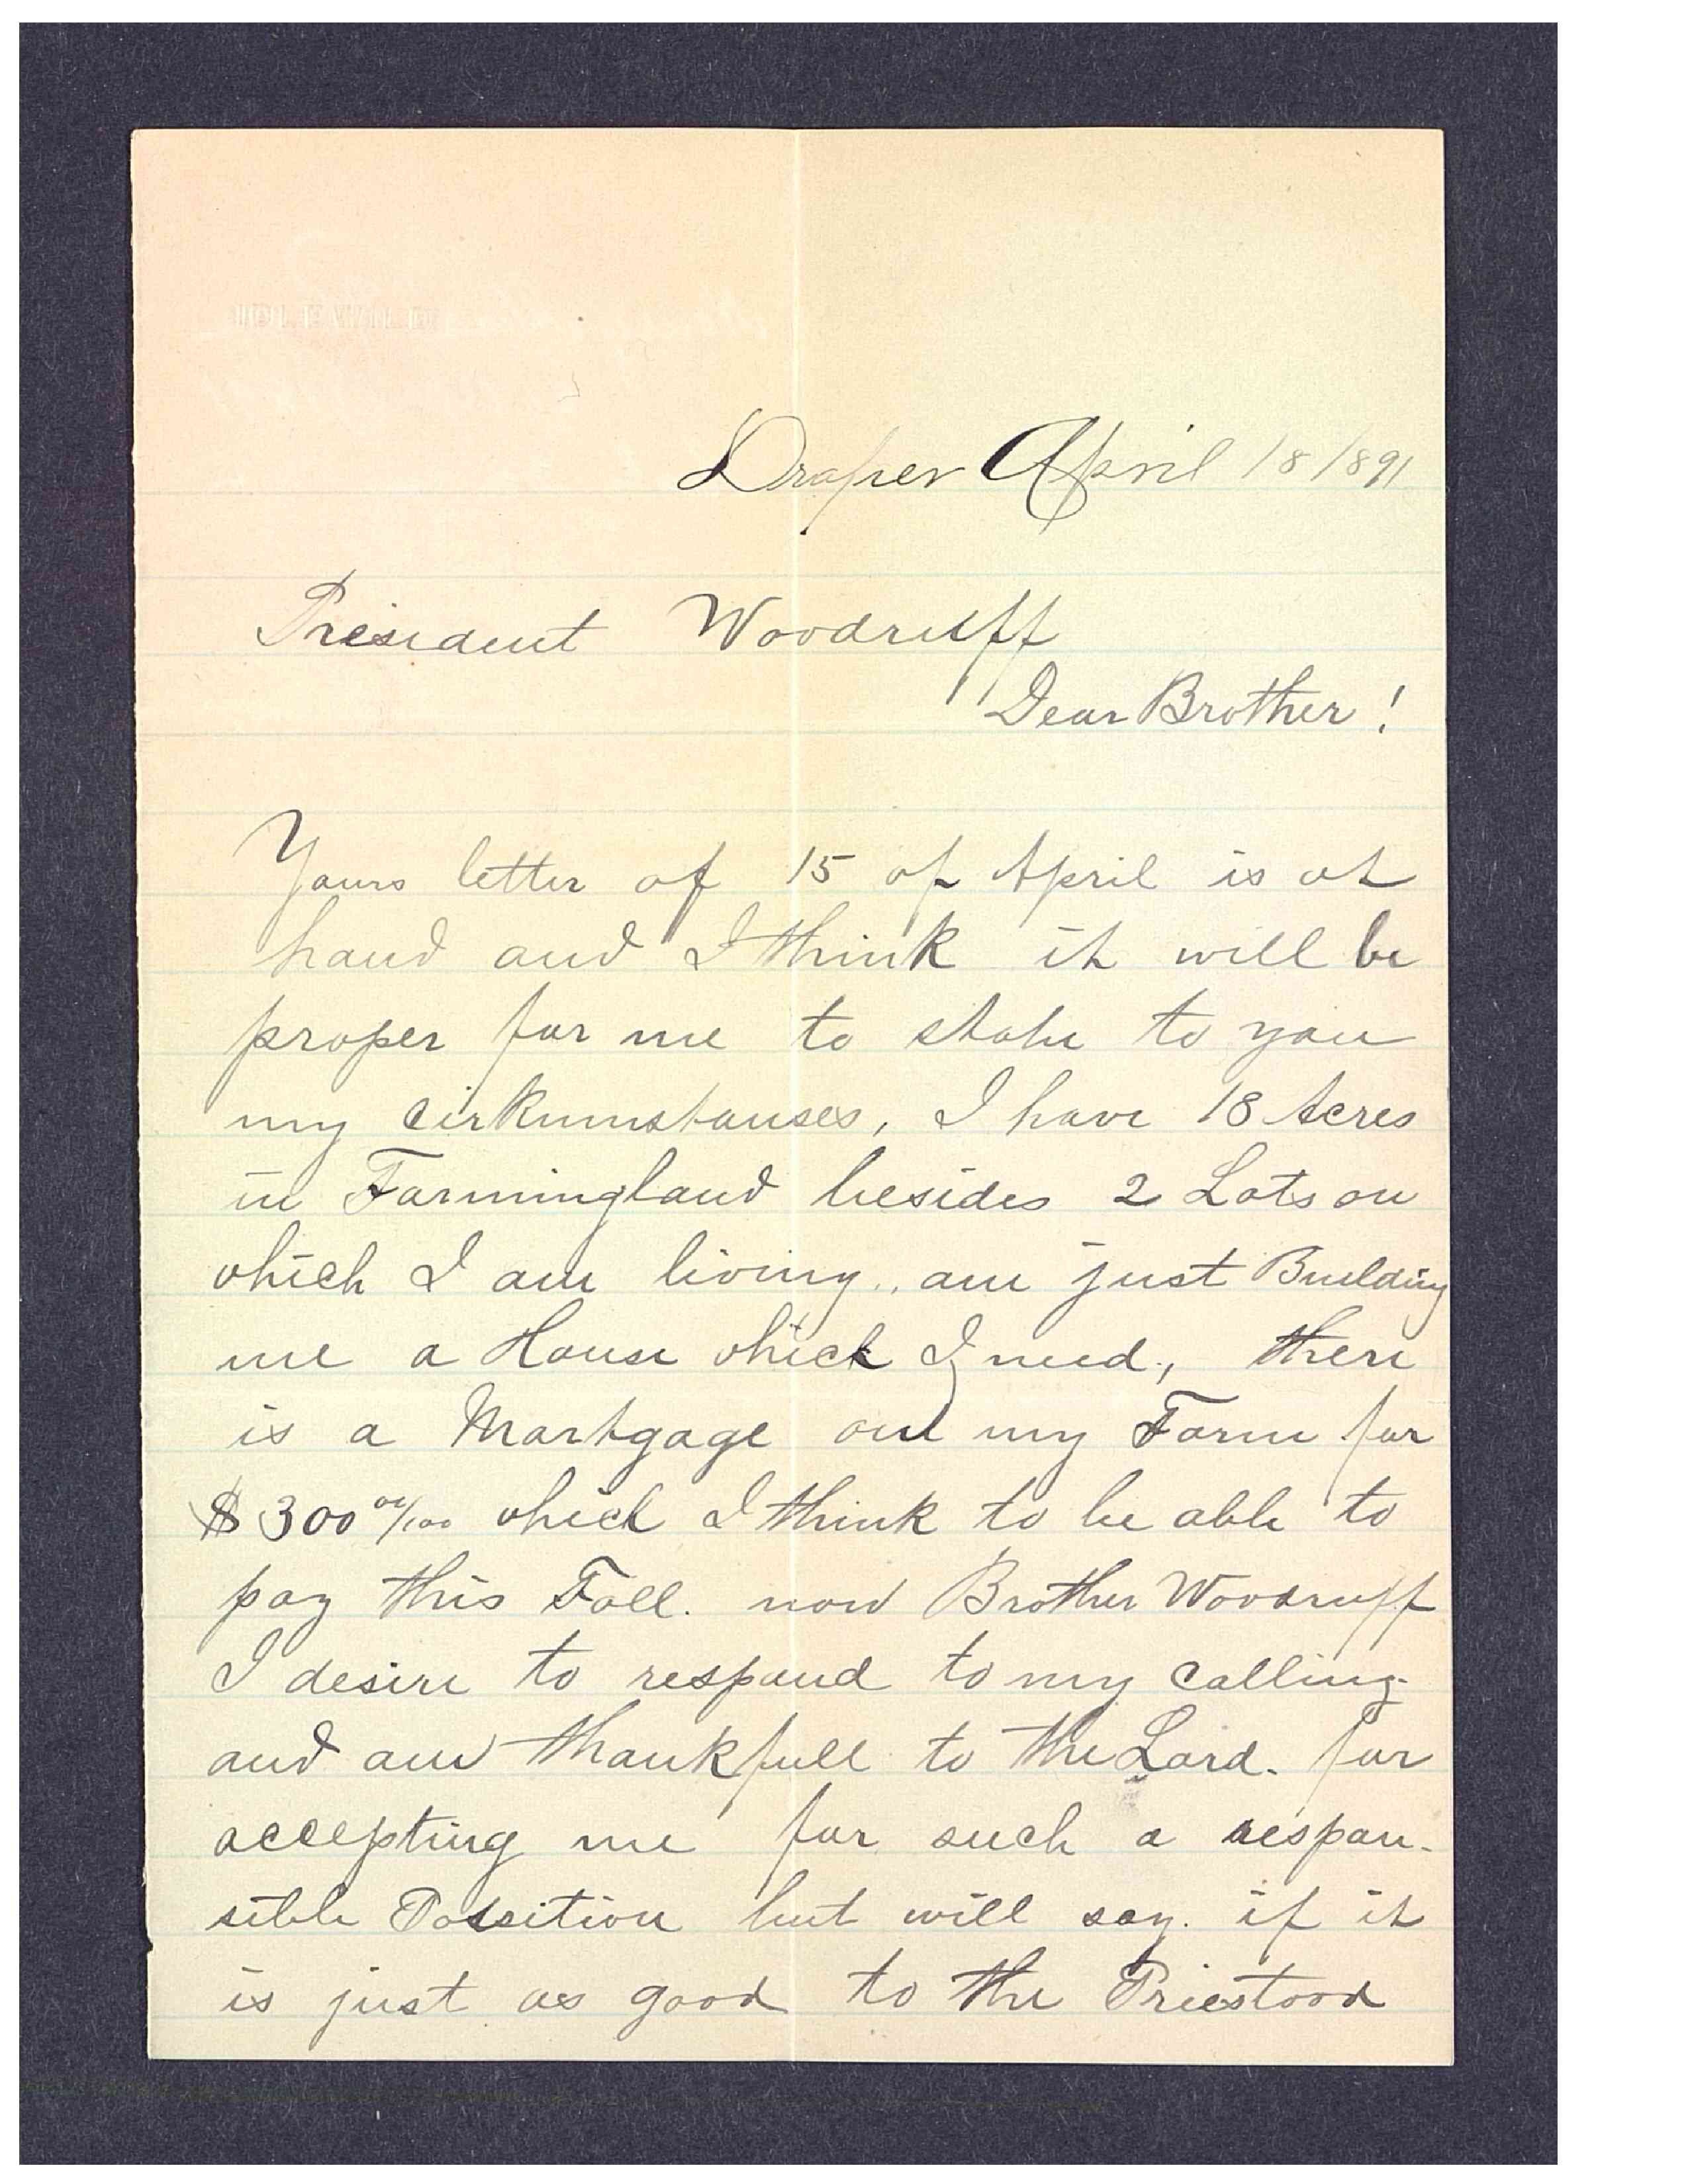 Draper April 18/891
President Woodruff
Dear Brother!
Yours letter of 15 of April is at
hand and I think it will be
proper for me to state to you
my cirkumstanses, I have 18 Acres
in Farmingland besides 2 Lots on
which I am living., am just Building
me a House which I need., there
is a Mortgage on my Farm for
$300 00/100 which I think to be able to
pay this Fall. now Brother Woodruff
I desire to respond to my calling.
and am thankfull to the Lord. for
accepting me for such a respon-
sible Possition but will say. if it
is just as good to the Priestood